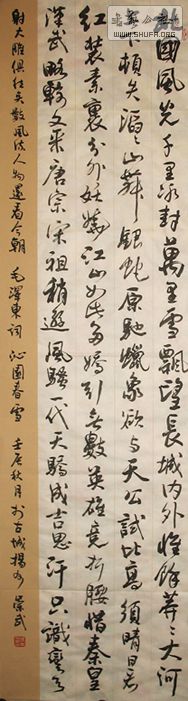 北國風光千里冰封萬里雪飄望長城内外惟餘莽莽大河
上下頓失滔滔山舞銀蛇原馳蠟象欲与天公試比高須晴日看
紅裝素裹分外妖嬈江山如此多嬌引無數英雄競折腰惜秦皇
漢武略輸文采唐宗宋祖稍遜風騷一代天驕成吉思汗只識彎弓
射大雕俱往矣數風流人物還看今朝 毛澤東詞 沁園春雪 壬辰秋月於古城揚州 崇武
WWW.SHUFA.ORG